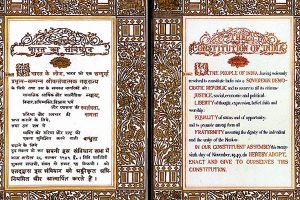 भारत का संविधान
भारत के लोग, भारत को एक सम्पूर्ण
प्रभुत्व-सम्पन्न लोकतंत्रात्मक गणराज्य
के लिए, तथा उस के समस्त नागरिकों को
सामाजिक, आर्थिक और राजनैतिक न्याय,
विचार, अभिव्यक्ति, विश्वास, धर्म
और उपासना की स्वतंत्रता,
प्रतिष्ठा और अवसर की समता
प्राप्त कराने के लिए,
तथा उन सब में
व्यक्ति की गरिमा और राष्ट्र की
एकता सुनिश्चित करने वाली बन्धुता
बढ़ाने के लिए
हो कर अपनी इस संविधान सभा में
आज तारीख २६ नवम्बर १९४९ ई० (मिति मार्गशीर्ष
शुक्ला सप्तमी, सम्वत् दो हजार छह विक्रमी) को
एतद्द्वारा इस संविधान को अङ्गीकृत, अधि-
नियमित और आत्मार्पित करते हैं।
CONSTITUTION OF INDIA
WE, THE PEOPLE OF INDIA, having solemnly
resolved to constitute India into a SOVEREIGN DEMO-
CRATIC REPUBLIC and to secure to all its citizens:
JUSTICE, social, economic and political;
LIBERTY of thought, expression, belief, faith and
worship;
EQUALITY of status and of opportunity;
and to promote among them all
FRATERNITY assuring the dignity of the individual
and the unity of the Nation;
IN OUR CONSTITUENT ASSEMBLY this twenty-
sixth day of November, 1949, do HEREBY ADOPT,
ENACT AND GIVE TO OURSELVES THIS
CONSTITUTION.